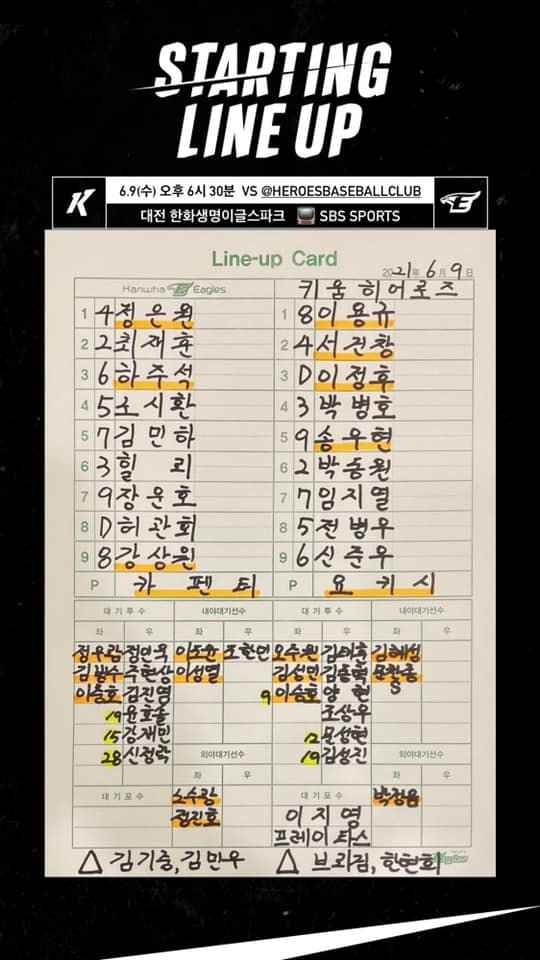 STARTING
LINE UP
6.9(수) 오후 6시 30분 VS @HEROESBASEBALLCLUB
대전 한화생명이글스파크 SBS SPORTS
Line-up Card
2021년 6월 9일
Hanwha Eagles 키움히어로즈
1 4 정은원 1 8 이용규
2 2 최재훈 2 4 서건창
3 6 하주석 3 D 이정후
4 5 노시환 4 3 박병호
5 7 김민하 5 9 송우현
6 3 힐리 6 2 박동원
7 9 장운호 7 7 임지열
8 D 허관회 8 5 전병우
9 8 강상원 9 6 신준우
P 카펜터 P 요키시
대기투수 내야대기선수 대기투수 내야대기선수
좌 우 좌 우 좌 우 좌 우
정우람 정민욱 이도윤 조한민 오수원 김태훈 김혜성
김범수 주현상 이성열 김성민 김동혁 문찬종
이승호 김진영 9 이승호 양현 S
19 윤호솔 조상우
15 강재민 12 문성현
28 신정락 외야대기선수 19 김성진 외야대기선수
좌 우 좌 우
대기포수 노수광 대기포수 박정음
정진호 이지영
프레이타스
△ 김기중, 김민우 △ 브리검, 한현희